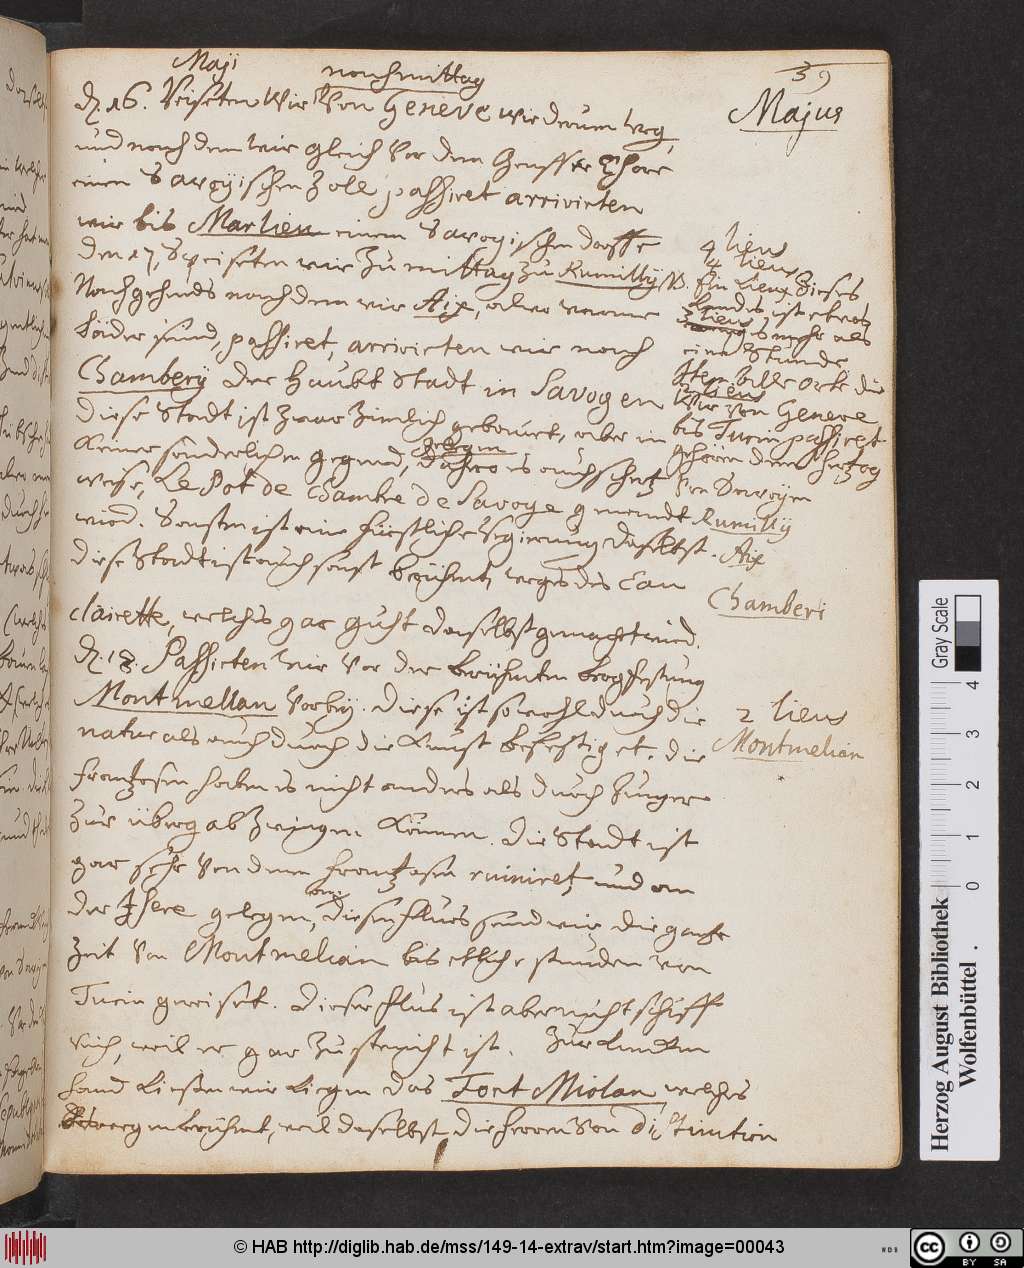 39
Majus
Maji
nachmittag
d. 16. Reiseten Wir Von Geneve wiederum weg,
und nach dem wir gleich Vor dem Genffer Thore
einen Savoyischen Zoll passiret arrivirten
wir bis Marlien einem Savoyischen dorffe
den 17, Speiseten wir Zu mittag Zu Rumilly
Nachgehends nach dem wir Aix, oder warme
bäder sind, passiret, arrivirten wir nach
Chambery der Haubt Stadt in Savoyen
diese Stadt ist zwar zimlich gebauet, aber in
keiner sonderlichen gegend, gelegen daher es auch schertz
weise, Le Pot de Chambre de Savoye genendt
wird. Sonsten ist eine fürstliche regierung daselbst.
diese Stadt ist auch sonst berühmt, wegen des Eau
clairette, welches gar guht daselbst gemacht wird.
d. 18. Passirten wir Vor der berühmten bergfestung
Montmellan Vorbey. diese ist so wohl durch die
natur als auch durch die Kunst befestiget. die
frantzosen haben es nicht anders als durch Hunger
zur übergab zwingen können. die Stadt ist
gar sehr Von denen frantzosen ruiniret, und an
der Isere gelegen, an diesen flus sind wir die gantze
Zeit Von Montmelian bis etliche stunden von
Turin gereiset. dieser flus ist aber nicht schiff
reich, weil er gar zu steinicht ist. Zur Lincken
hand liessen wir liegen das Fort Miolan welches
wegen berühmt, weil daselbst die herren Von distinction
4 lieus
4 lieus
NB. Ein Lieux dieses
Landes ist etwas
lieus mehr als
eine Stunde
Item alle orte die
lieus
Wir Von Geneve
bis Turin passiret
gehören dem Hertzog
Von Savoyen
Rumilly
Aix
Chamberi
2 lieus
Montmelian
Herzog August Bibliothek
Wolfenbüttel
Gray Scale
0 1 2 3 4
© HAB http://diglib.hab.de/mss/149-14-extrav/start.htm?image=00043
CC BY SA